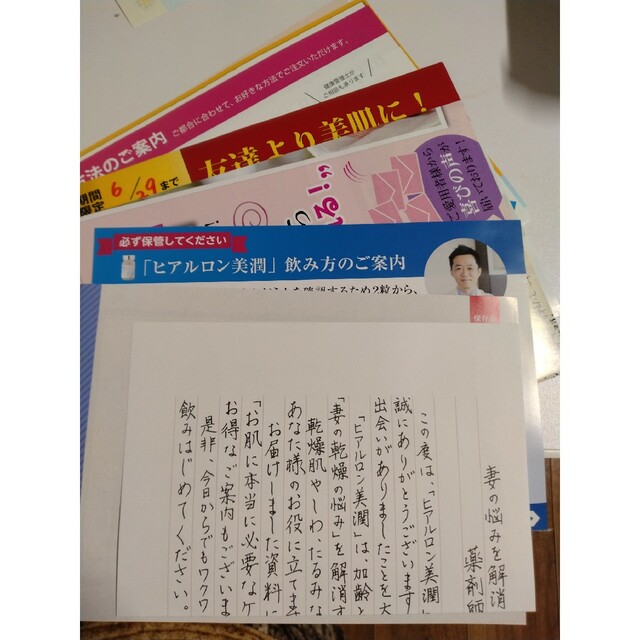 ご都合に合わせて、お好きな方法でご注文いただけます。
法のご案内
健康管理士が
ご相談も承ります
友達より美肌に！
期間
限定
6/29まで
ご愛用者様から
喜びの声が
届いております！
必ず保管してください
「ヒアルロン美潤」飲み方のご案内
ため2粒から、
保存
妻の悩みを解消
薬剤師
この度は、「ヒアルロン美潤」
誠にありがとうございます
出会いがありましたことを大
「ヒアルロン美潤」は、加齢と
「妻の乾燥の悩み」を解消す
乾燥肌やしわ、たるみな
あなた様のお役に立てま
お届けしました資料に
「お肌に本当に必要なケ
お得なご案内もございま
是非、今日からでもワクワ
飲みはじめてください。